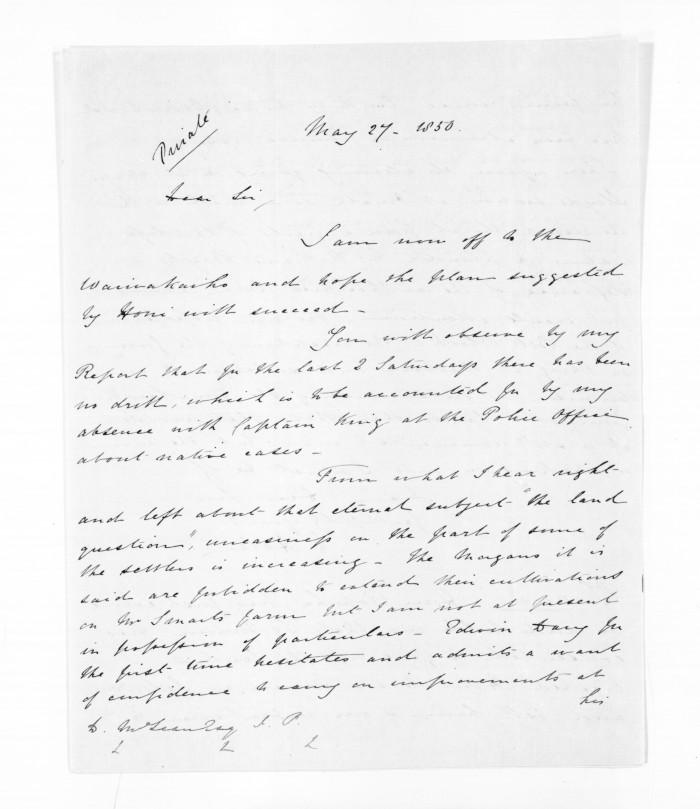 Private
May 27 - 1850.
Dear Sir,
I am now off to the
Waiwakaiho and hope the plan suggested
by Honi will succeed -
You will observe by my
Report that for the last 2 Saturdays there has been
no drill, which is to be accounted for by my
absence with Captain King at the Police Office
about native cases -
From what I hear right
and left about that eternal subject "the land
question", uneasiness on the part of some of
the settlers is increasing - The Morgans it is
said are forbidden to extend their cultivations
on Mr Smarts farm but I am not at present
in possession of particulars - Edwin for
the first time hesitates and admits a want
of confidence to carry on improvements at
his
D. McLean Esq J. P.